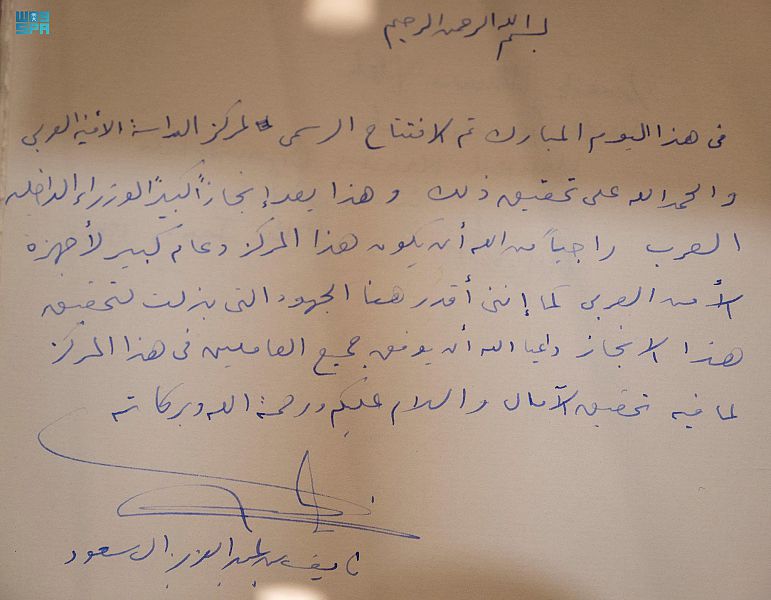 واس
SPA
بسم الله الرحمن الرحيم
في هذا اليوم المبارك تم الافتتاح الرسمي لمركز الدراسة الأمنية العربي
والحمد الله على تحقيق ذلك وهذا يعد إنجازاً كبيراً لوزراء الداخلية
العرب راجياً من الله أن يكون هذا المركز دعام كبير لأجهزة
الأمن العربي كما إنني أقدر هنا الجهود التي بذلت لتحقيق
هذا الانجاز داعيا الله أن يوفق جميع العاملين في هذا المركز
لما فيه تحقيق الآمال والسلام عليكم ورحمة الله وبركاته
نايف بن عبد العزيز ال سعود